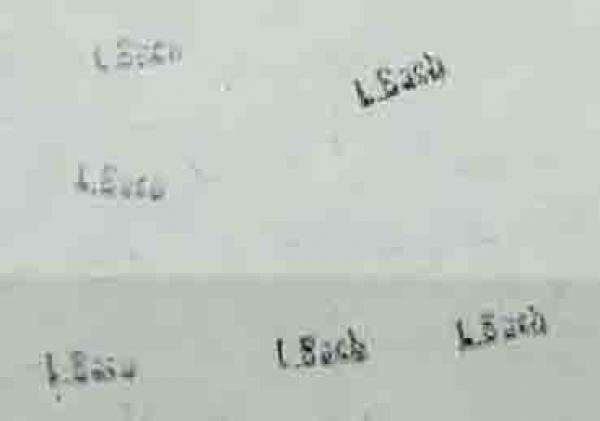 L.Bach
L.Bach
L.Bach
L.Bach
L.Bach
L.Bach